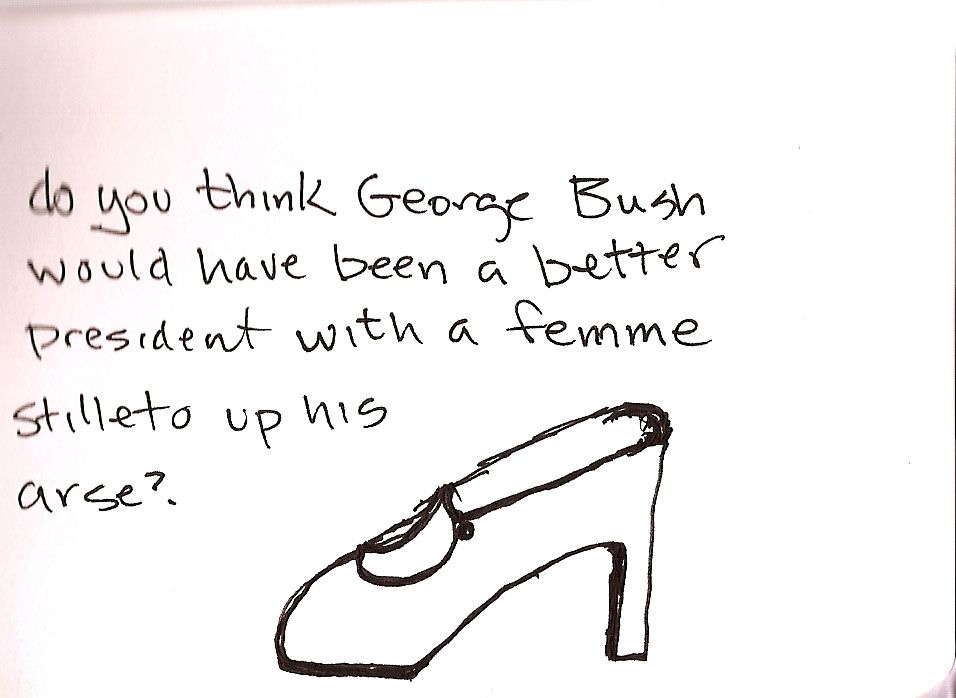 do you think George Bush
would have been a better
president with a femme
stilleto up his
arse?.